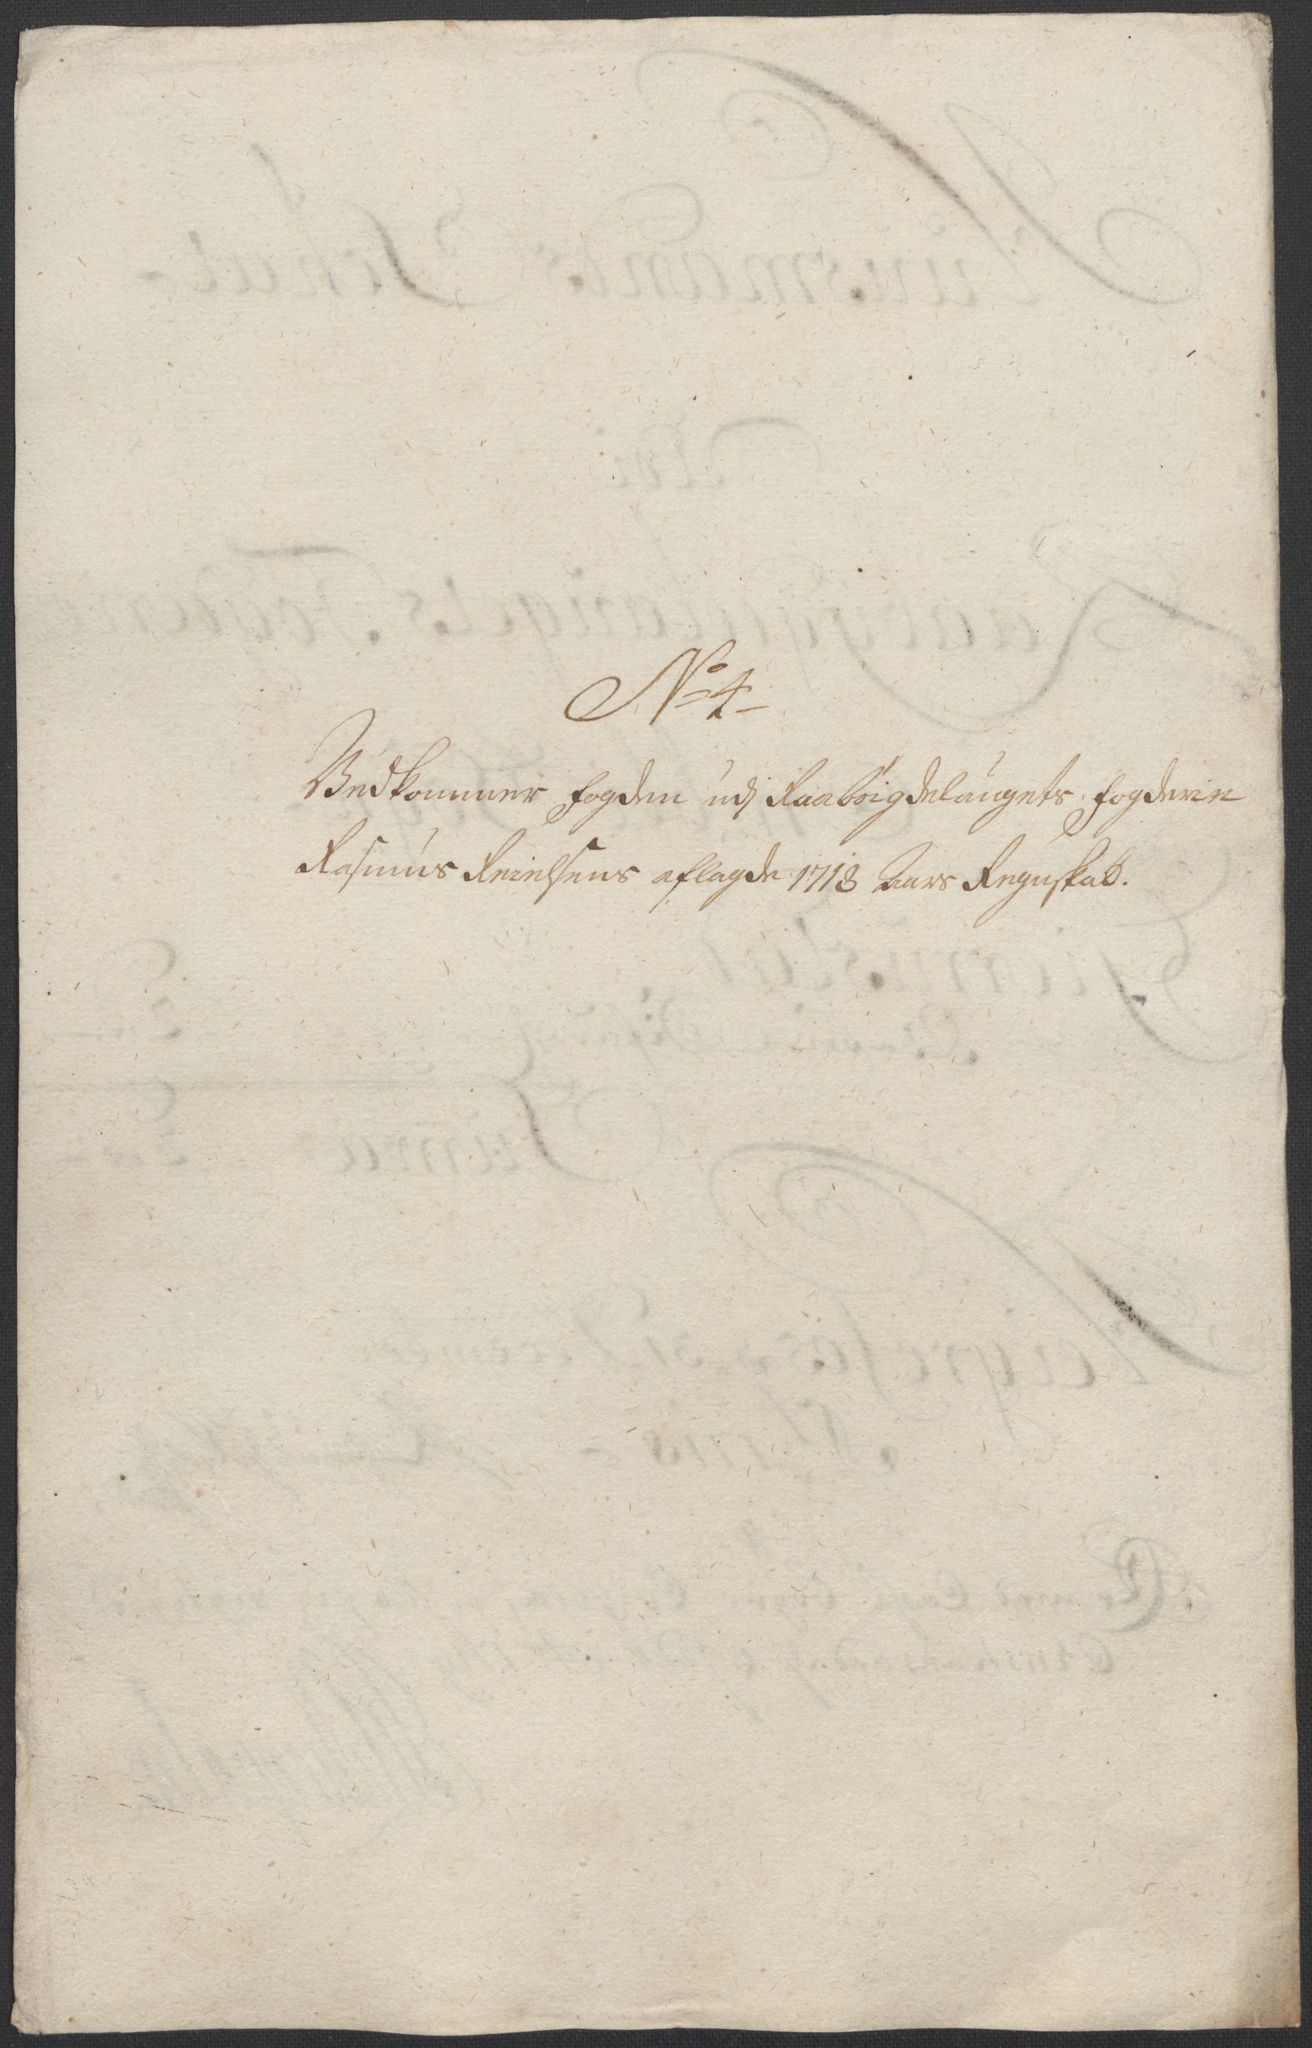 No 4
Vedkommer fogden udj Raabøigdelaugets fogderie
Rasmus Reielsens aflagde 1718 Aars Regnskab.